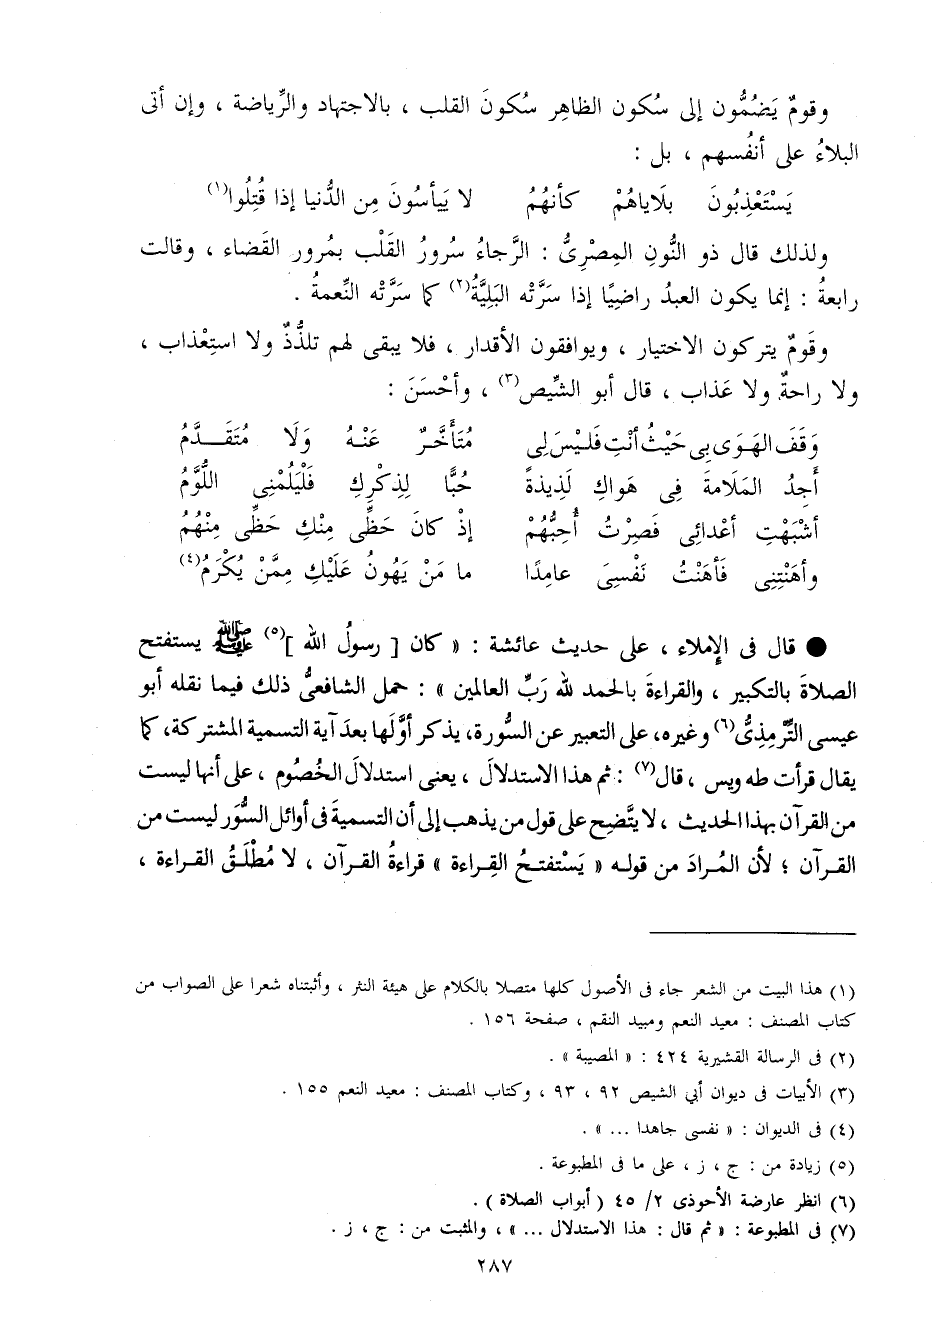 وقومٌ يَضُمُّون إلى سُكون الظاهِر سُكونَ القلب ، بالاجتهاد والرِّياضة ، وإن أتى
البلاءُ على أنفُسهم ، بل :
يَسْتَعْذِبُونَ بَلَاياهُمْ كأنهُمُ لا يَيأسُونَ مِن الدُّنيا إذا قُتِلُوا(١)
ولذلك قال ذو النُّونِ المِصْرِىُّ : الرَّجاءُ سُرورُ القَلْب بمُرور القَضاء ، وقالت
رابعةُ : إنما يكون العبدُ راضِيًا إذا سَرَّته البَلِيَّةُ(٢) كما سَرَّتْه النِّعمةُ .
وقَومٌ يتركون الاختيار ، ويوافقون الأقدار ، فلا يبقى لهم تلذُّذٌ ولا استِعْذاب ،
ولا راحةٌ ولا عَذاب ، قال أبو الشِّيص(٣) ، وأحْسَنَ :
وَقَفَ الهَوَى بِى حَيْثُ أنْتِ فَلَيْسَ لِى مُتَأَخَّرٌ عَنْهُ وَلَا مُتَقَدَّمُ
أَجِدُ المَلَامةَ فِى هَواكِ لَذِيذةً حُبًّا لِذِكْرِكِ فَلْيَلُمْنِى اللُّوَّمُ
أشْبَهْتِ أعْدائِى فَصِرْتُ أُحِبُّهُمْ إذْ كانَ حَظِّى مِنْكِ حَظِّى مِنْهُمُ
وأهَنْتِنِى فَأهَنْتُ نَفْسِىَ عامِدًا ما مَنْ يَهُونُ عَلَيْكِ مِمَّنْ يُكْرَمُ(٤)
● قال فى الإملاء ، على حديث عائشة : « كان [ رسولُ الله ](٥) ﷺ يستفتح
الصلاةَ بالتكبير ، والقراءةَ بالحمد لله رَبِّ العالمين » : حمل الشافعىُّ ذلك فيما نقله أبو
عيسى التِّرمِذِىُّ(٦) وغيره، على التعبير عن السُّورة، يذكر أوَّلَها بعدَ آية التسمية المشتركة، كما
يقال قرأت طه ويس ، قال(٧) : ثم هذا الاستدلالَ ، يعنى استدلالَ الخُصُوم ، على أنها ليست
من القرآن بهذا الحديث ، لا يتَّضِح على قول من يذهب إلى أن التسميةَ فى أوائل السُّوَر ليست من
القرآن ؛ لأن المُرادَ من قوله « يَسْتفتحُ القِراءة » قراءةُ القرآن ، لا مُطْلَقُ القراءة ،
(١) هذا البيت من الشعر جاء فى الأصول كلها متصلا بالكلام على هيئة النثر ، وأثبتناه شعرا على الصواب من
كتاب المصنف : معيد النعم ومبيد النقم ، صفحة ١٥٦ .
(٢) فى الرسالة القشيرية ٤٢٤ : « المصيبة » .
(٣) الأبيات فى ديوان أبي الشيص ٩٢ ، ٩٣ ، وكتاب المصنف : معيد النعم ١٥٥ .
(٤) فى الديوان : « نفسى جاهدا ... » .
(٥) زيادة من : ج ، ز ، على ما فى المطبوعة .
(٦) انظر عارضة الأحوذى ٢/ ٤٥ ( أبواب الصلاة ) .
(٧) فى المطبوعة : « ثم قال : هذا الاستدلال ... » ، والمثبت من : ج ، ز .
٢٨٧